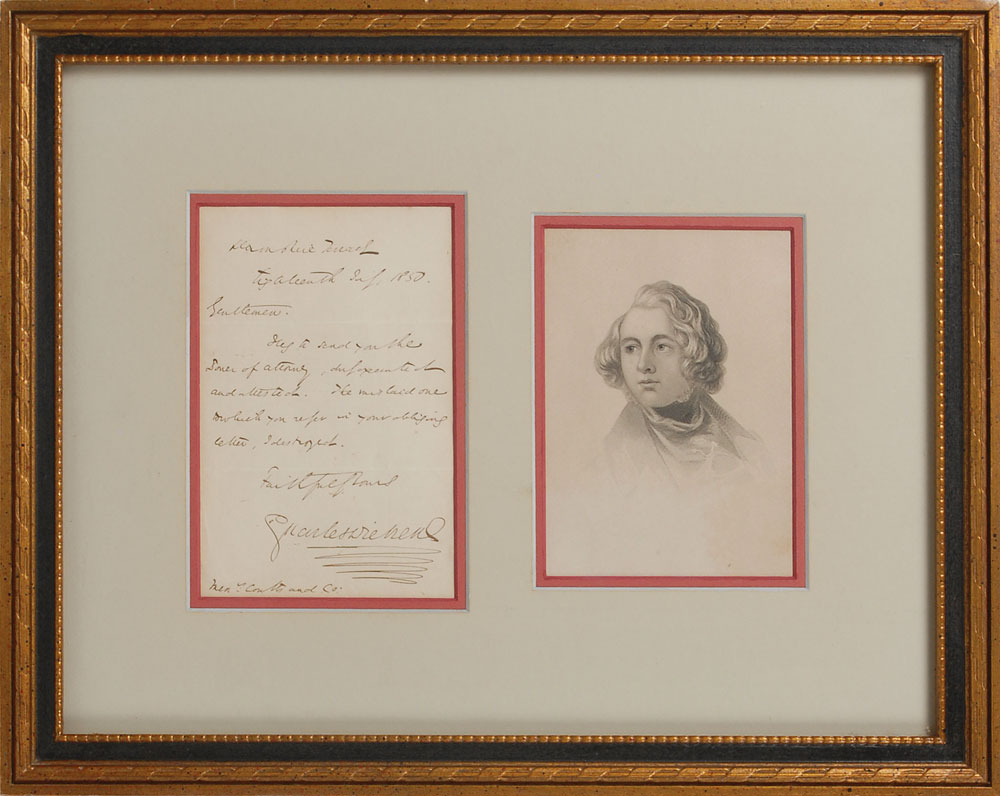 Devonshire Terrace
Eighteenth July, 1850.
Gentlemen.
I beg to send you the
Power of attorney, duly executed
and attested. The mislaid one
to which you refer in your obliging
letter, I destroyed.
Faithfully Yours
Charles Dickens
Messrs. Coutts and Co: